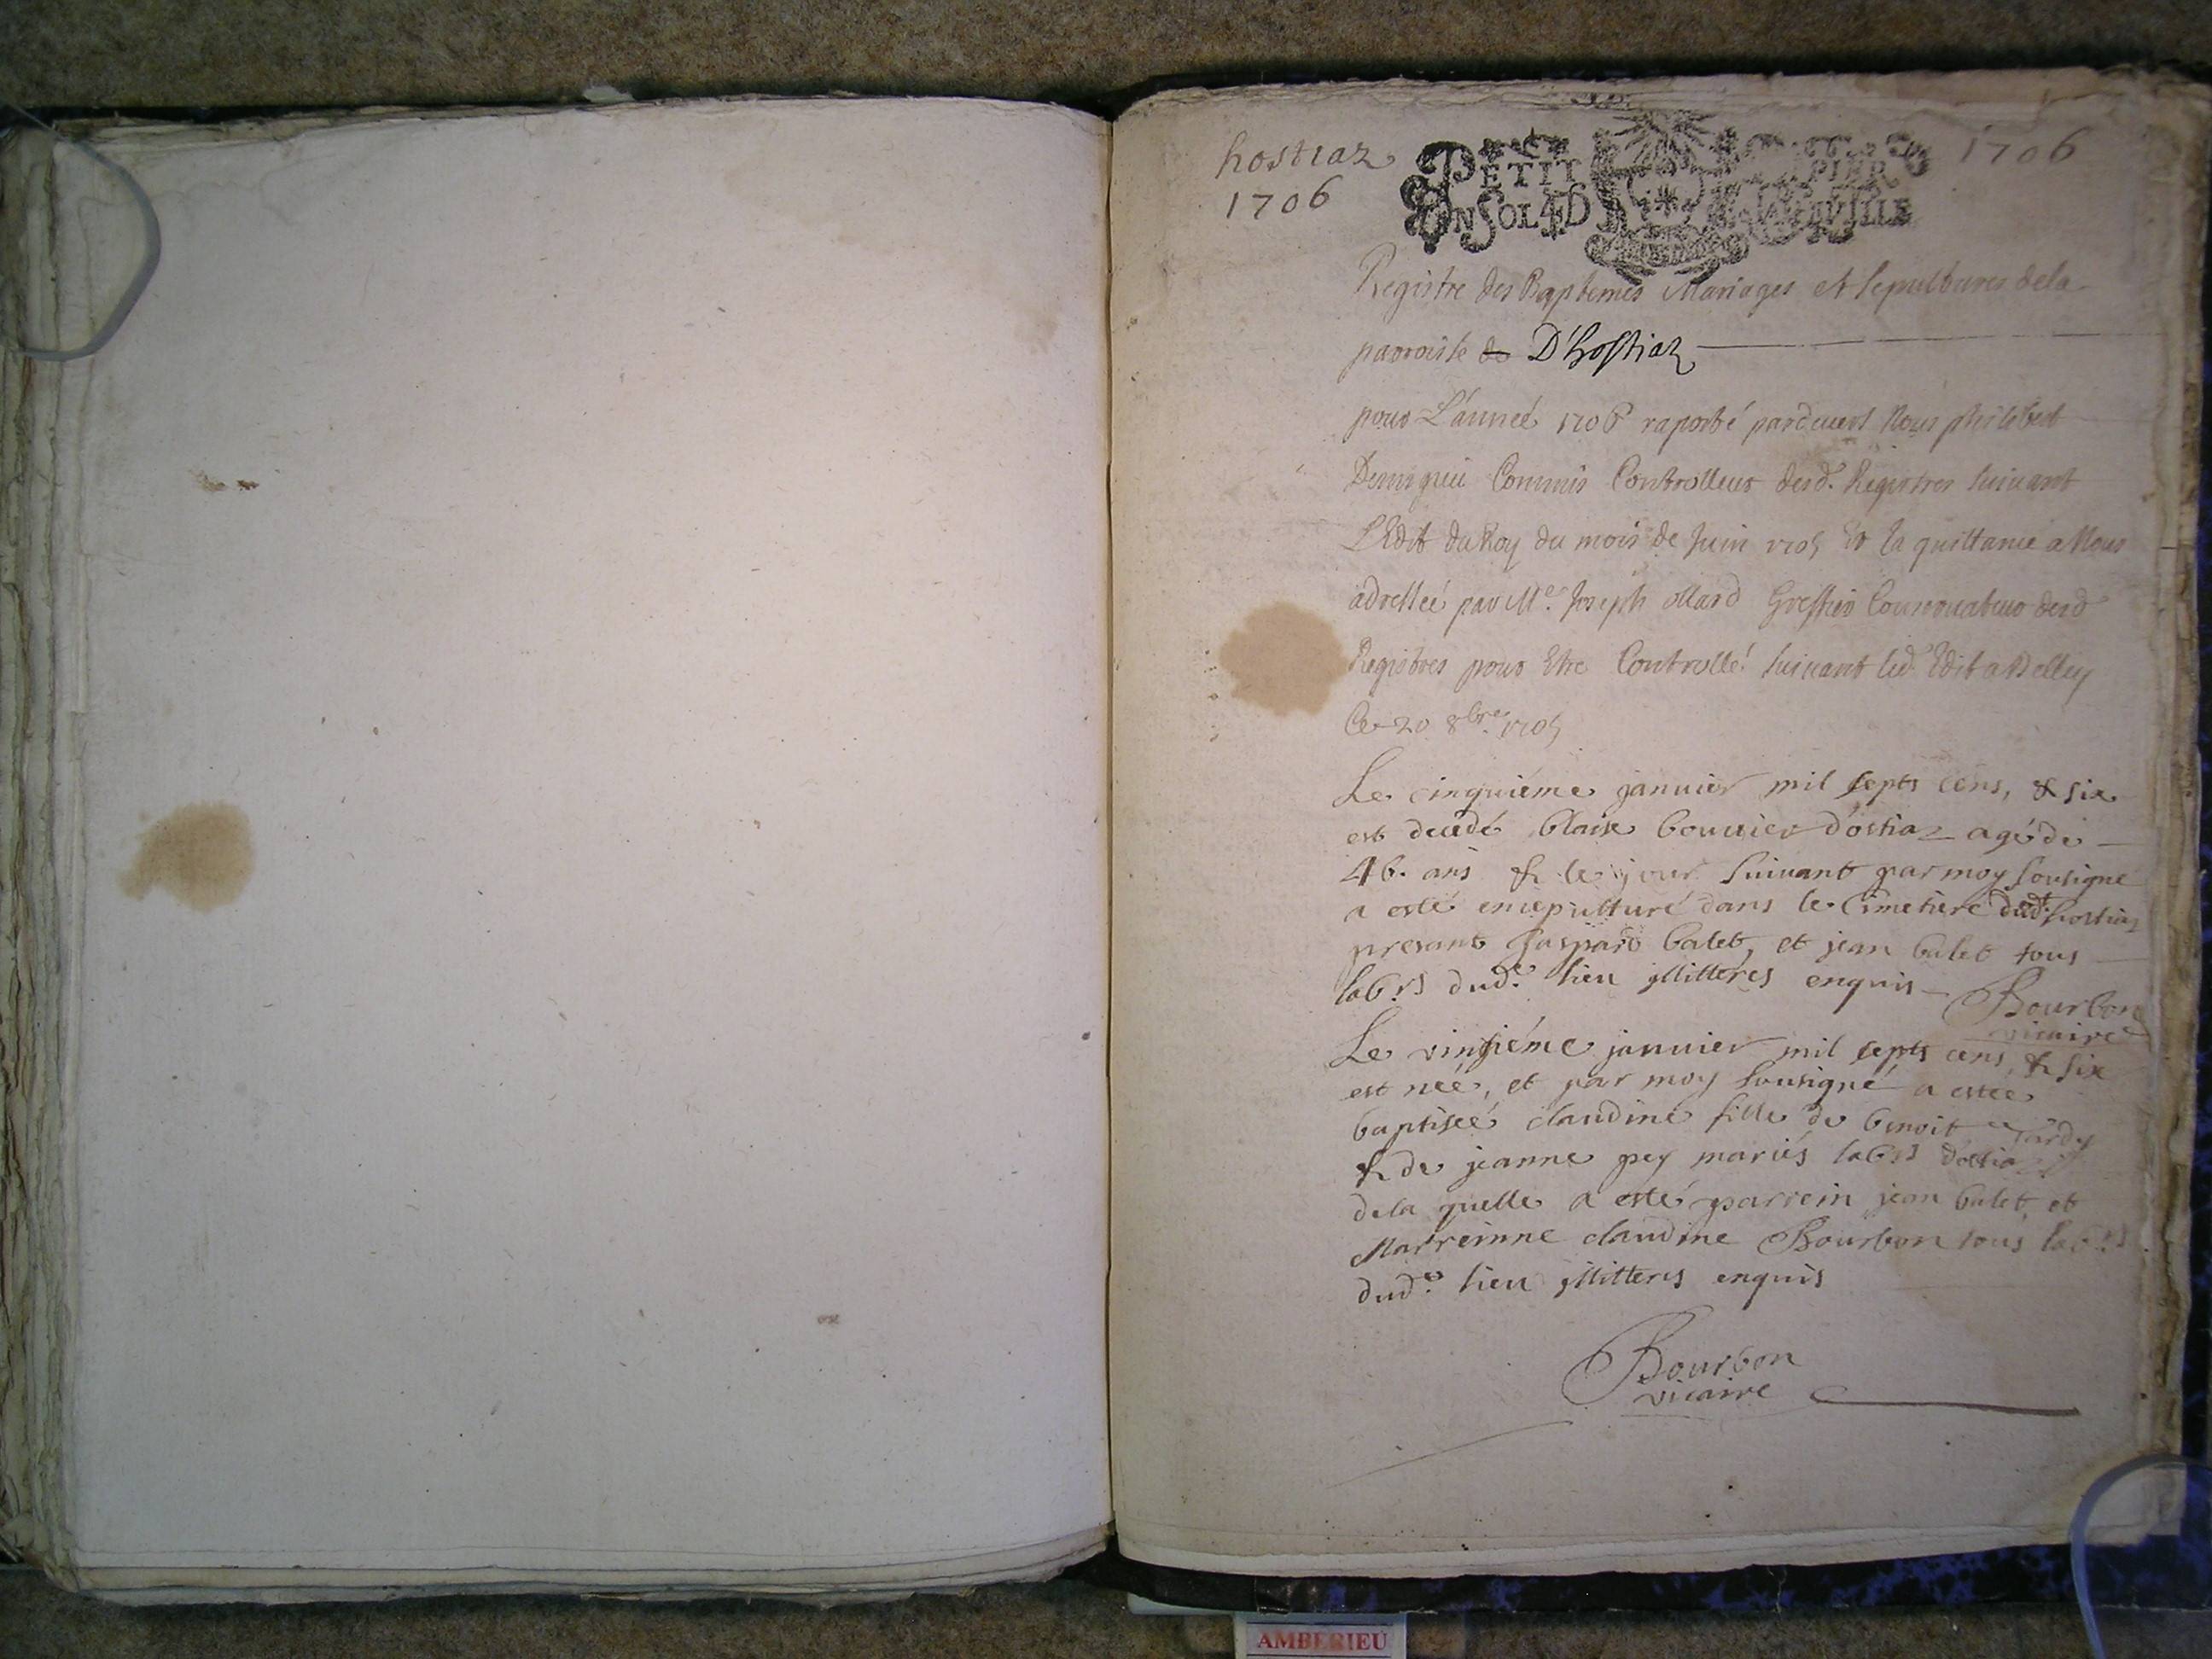 hostiaz
1706
PETIT PAPIER
UN SOL 4 D LA FEUILLE
1706
Registre des Baptemes Mariages et sepultures dela
parroisse de D'hostiaz
pour L'année 1706 raporté pardevers Nous philibert
Commis Controlleur desd. Registres suivant
L'Edit du Roy du mois de Juin 1705 Et la quittance a Nous
adressée par Me. Joseph ollard Greffier Conservateur desd
Registres pour Etre Controllé suivant led. Edit a Belley
Ce 20 8bre. 1705
Le cinquiéme januier mil septs cens, & six
est decedé blaise bouuier d'ostiaz agé de
46. ans & le jour suiuant par moy sousigné
a esté ensepulturé dans le Cimetiere dud. hostiaz
presant gaspard balet, et jean balet tous
labrs dude. lieu jllitterés enquis Bourbon
vicaire
Le vingiéme januier mil septs cens, & six
est néé, et par moy sousigné a estéé
baptiséé claudine fille de benoit Tardy
& de jeanne pey mariés labrs d'ostiaz
dela quelle a esté parrein jean balet, et
Marreinne claudine Bourbon tous labrs
dude. lieu jllitterés enquis
Bourbon
vicaire
AMBERIEU